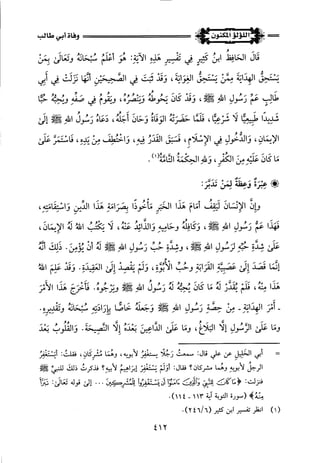 اللؤلؤ المكنون
وفاة أبي طالب
قَالَ الحَافِظُ ابنُ كَثِيرٍ فِي تَفْسِيرِ هَذِهِ الآيَةِ: هُوَ أعْلَمُ سُبْحَانَهُ وتَعَالَى بِمَنْ
يَسْتَحِقُّ الهِدَايَةَ مِمَّنْ يَسْتَحِقُّ الغِوَايَةَ، وَقَدْ ثَبَتَ فِي الصَّحِيحَيْنِ أنَّهَا نَزَلَتْ فِي أَبِي
طَالِبٍ عَمِّ رَسُولِ اللهِ ﷺ، وَقَدْ كَانَ يَحُوطُهُ ويَنْصُرُهُ، ويَقُومُ فِي صَفِّهِ ويُحِبُّهُ حُبًّا
شَدِيدًا طَبِيعِيًّا لَا شَرْعِيًّا، فَلَمَّا حَضَرَتْهُ الوَفَاةُ وَحَانَ أجَلُهُ، دَعَاهُ رَسُولُ اللهِ ﷺ إِلَى
الإِيمَانِ، وَالدُّخُولِ فِي الإِسْلَامِ، فَسَبَقَ القَدَرُ فِيهِ، وَاخْتُطِفَ مِنْ يَدِهِ، فَاسْتَمَرَّ عَلَى
مَا كَانَ عَلَيْهِ مِنَ الكُفْرِ، وَللهِ الحِكْمَةُ التَّامَّةُ(١).
عِبْرَةٌ وَعِظَةٌ لِمَنْ تَدَبَّرَ:
وإنَّ الإِنْسَانَ لَيَقِفُ أمَامَ هَذَا الخَبَرِ مَأْخُوذًا بِصَرَامَةِ هَذَا الدِّينِ وَاسْتِقَامَتِهِ،
فَهَذَا عَمُّ رَسُولِ اللهِ ﷺ، وَكَافِلُهُ وحَامِيهِ والذَّائِدُ عَنْهُ، لَا يَكْتُبُ اللهُ لَهُ الإِيمَانَ،
عَلَى شِدَّةِ حُبِّهِ لِرَسُولِ اللهِ ﷺ، وشِدَّةِ حُبِّ رَسُولِ اللهِ ﷺ لَهُ أنْ يُؤْمِنَ. ذَلِكَ أنَّهُ
إِنَّمَا قَصَدَ إِلَى عَصَبِيَّةِ القَرَابَةِ وحُبِّ الأُبُوَّةِ، وَلَمْ يَقْصِدْ إِلَى العَقِيدَةِ. وَقَدْ عَلِمَ اللهُ
هَذَا مِنْهُ، فَلَمْ يُقَدِّرْ لَهُ مَا كَانَ يُحِبُّهُ لَهُ رَسُولُ اللهِ ﷺ ويَرْجُوهُ. فَأَخْرَجَ هَذَا الأَمْرَ
- أَمْرَ الهِدَايَةِ - مِنْ حِصَّةِ رَسُولِ اللهِ ﷺ وَجَعَلَهُ خَاصًّا بِإرَادَتِهِ سُبْحَانَهُ وتَقْدِيرِهِ.
ومَا عَلَى الرَّسُولِ إلَّا البَلَاغُ، ومَا عَلَى الدَّاعِينَ بَعْدَهُ إلَّا النَّصِيحَةُ. والقُلُوبُ بَعْدَ
= أبي الخليل عن علي قال: سمعت رَجُلًا يستغفر لأبويه، وهُما مُشركان، فقلت: أيستغفر
الرجل لأبويه وهما مشركان؟ فقال: أوَلَمْ يَسْتَغْفِر إبراهيم لأبيه؟ فذكرت ذلك للنبي ﷺ
فنزلت: ﴿مَا كَانَ لِلنَّبِيِّ وَالَّذِينَ ءَامَنُوا أَن يَسْتَغْفِرُوا لِلْمُشْرِكِينَ ... إلى قوله تعالى: تَبَرَّأَ
مِنْهُ﴾ (سورة التوبة آية ١١٣ - ١١٤).
(١) انظر تفسير ابن كثير (٦/٢٤٦).
٤١٢